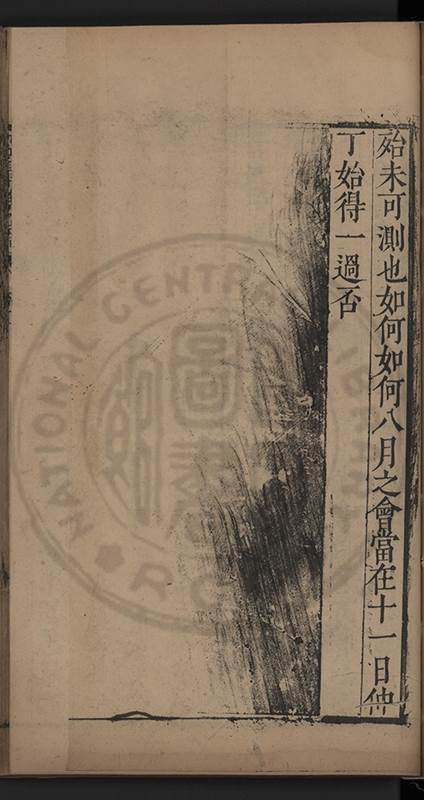 殆未可測也如何如何八月之會當在十一日仲
丁始得一過否
NATIONAL CENTRAL